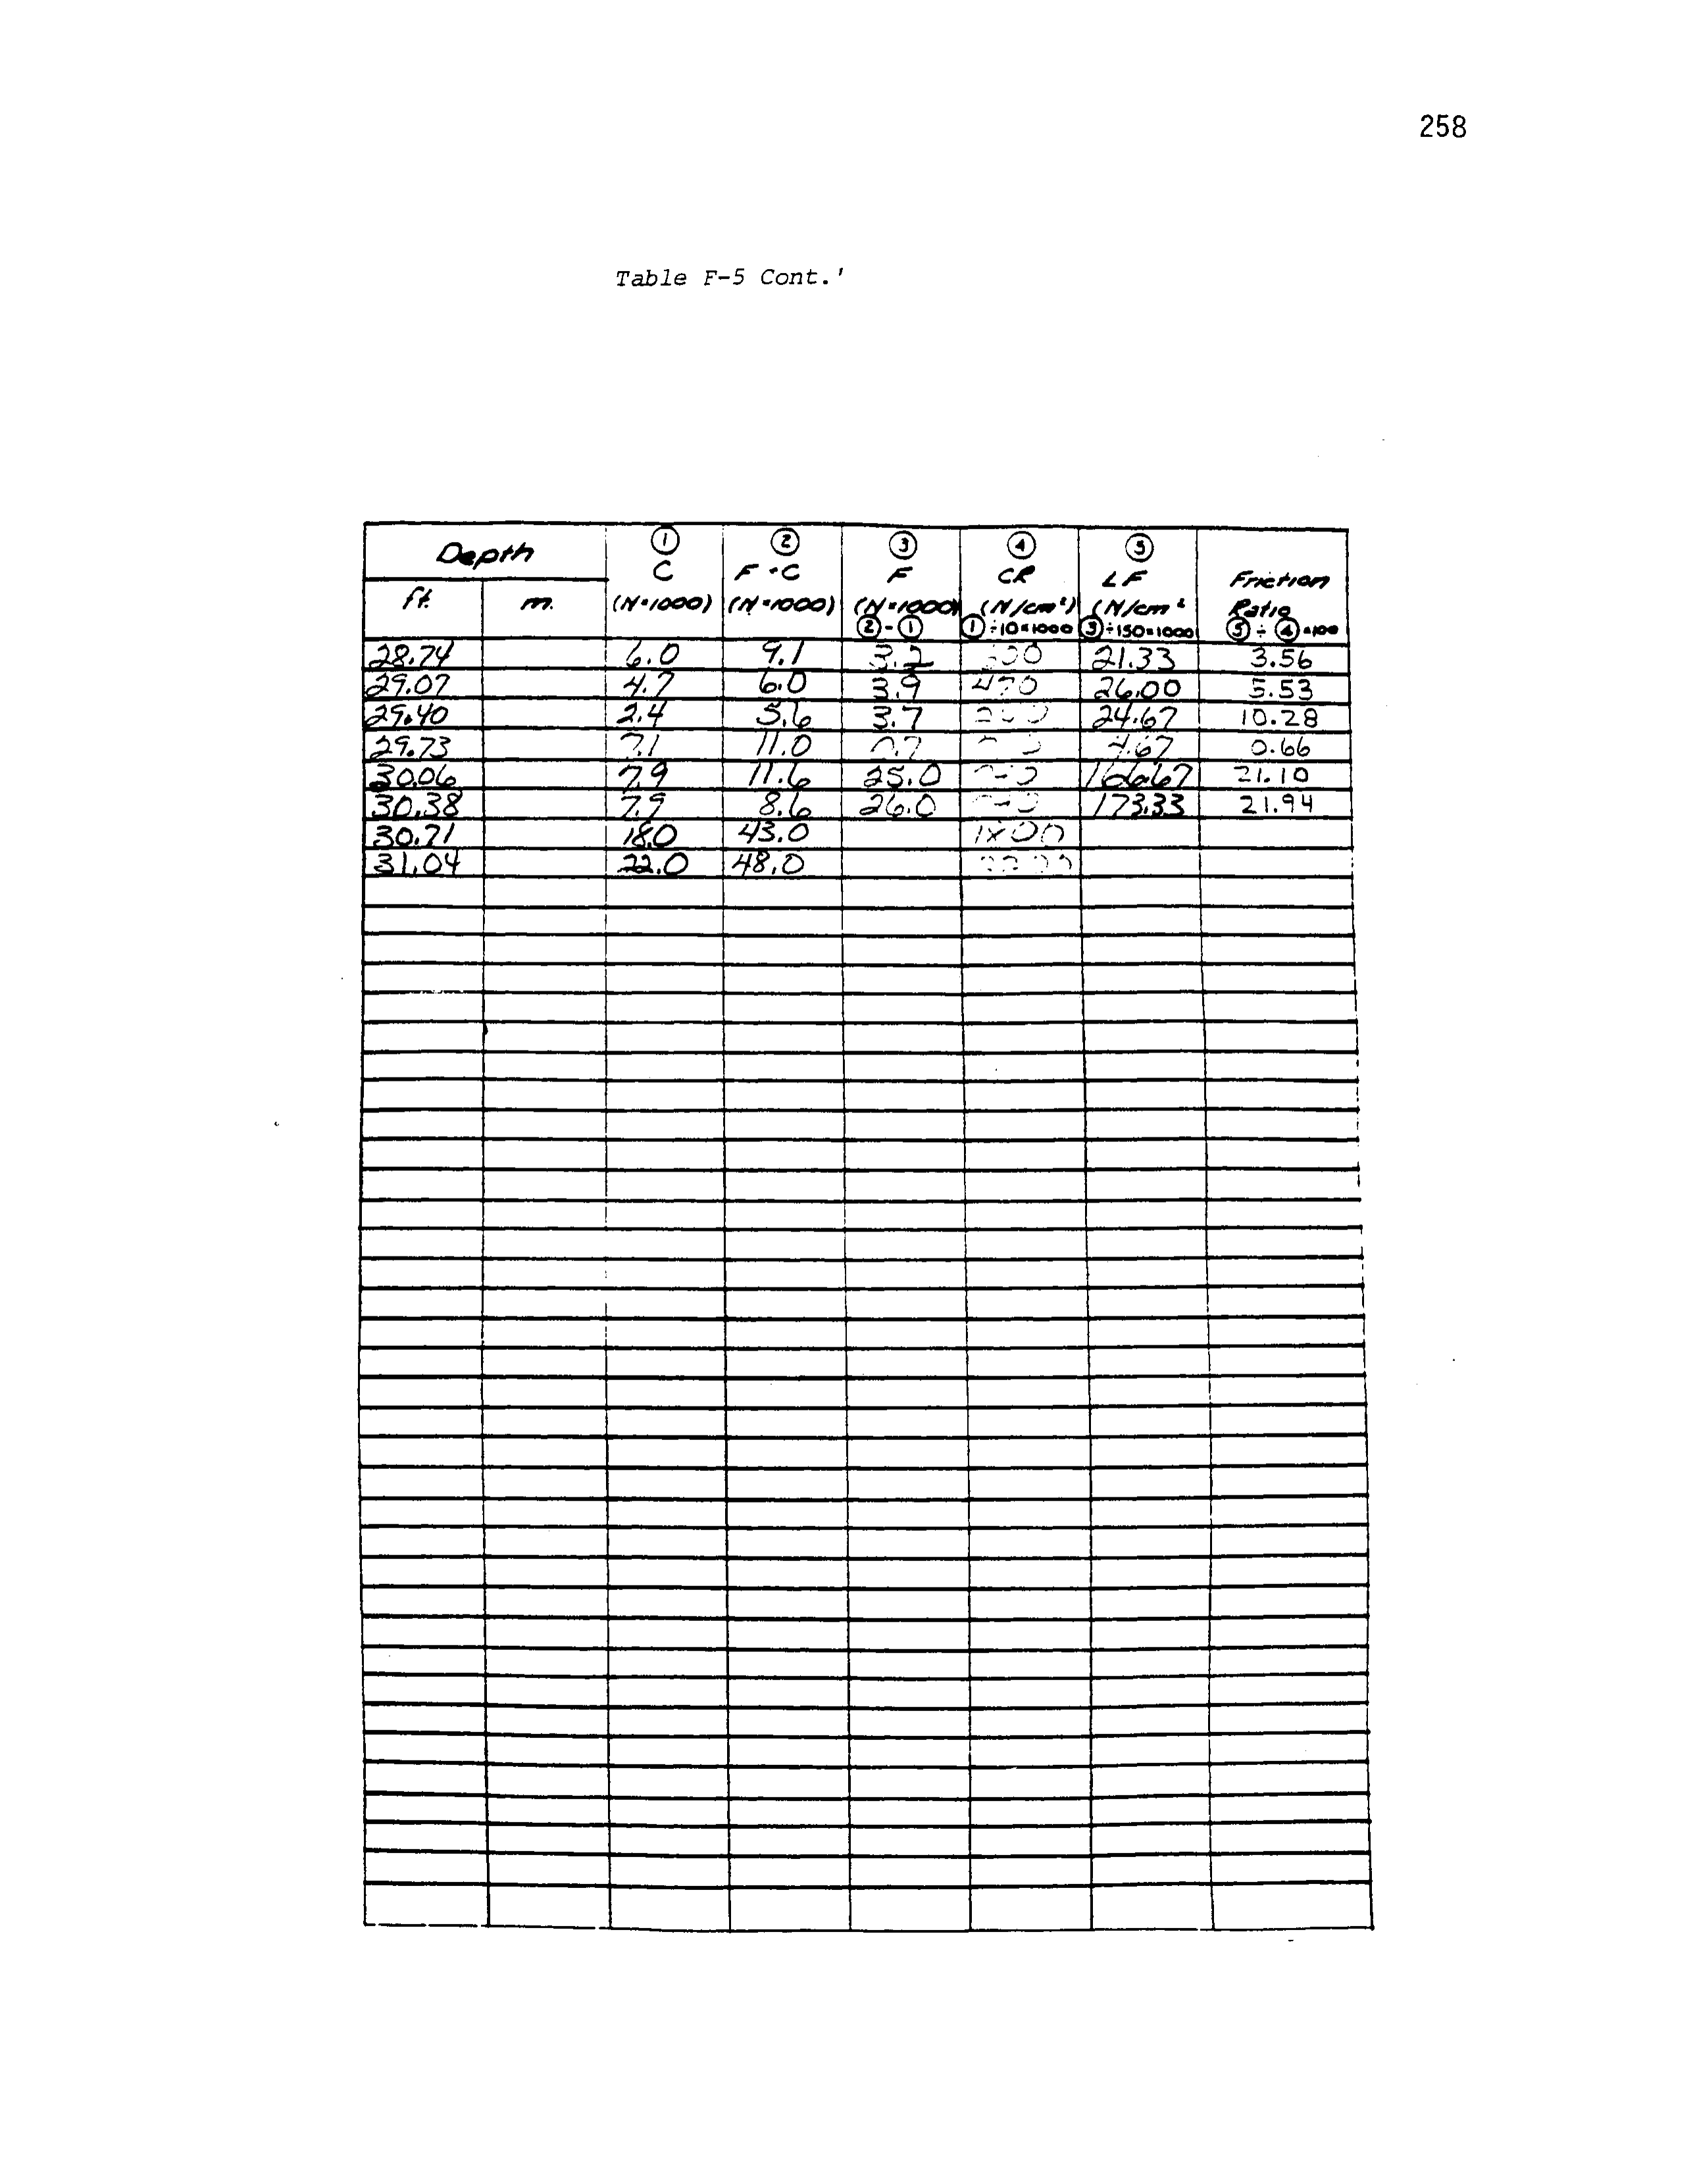 258
Table F-5 Cont.'
Depth ① ② ③ ④ ⑤ Friction Ratio
C F+C F CR LF
ft. m. (N×1000) (N×1000) (N×1000) (N/cm²) (N/cm²
②-① ①÷10×1000 ③÷150×1000 ⑤÷④×100
28.74 6.0 9.1 3.2 21.33 3.56
29.07 4.7 6.0 3.9 470 26.00 5.53
29.40 2.4 5.6 3.7 24.67 10.28
29.73 7.1 11.0 0.7 4.67 0.66
30.06 7.9 11.6 25.0 166.67 21.10
30.38 7.9 8.6 26.0 173.33 21.94
30.71 18.0 43.0 1800
31.04 22.0 48.0